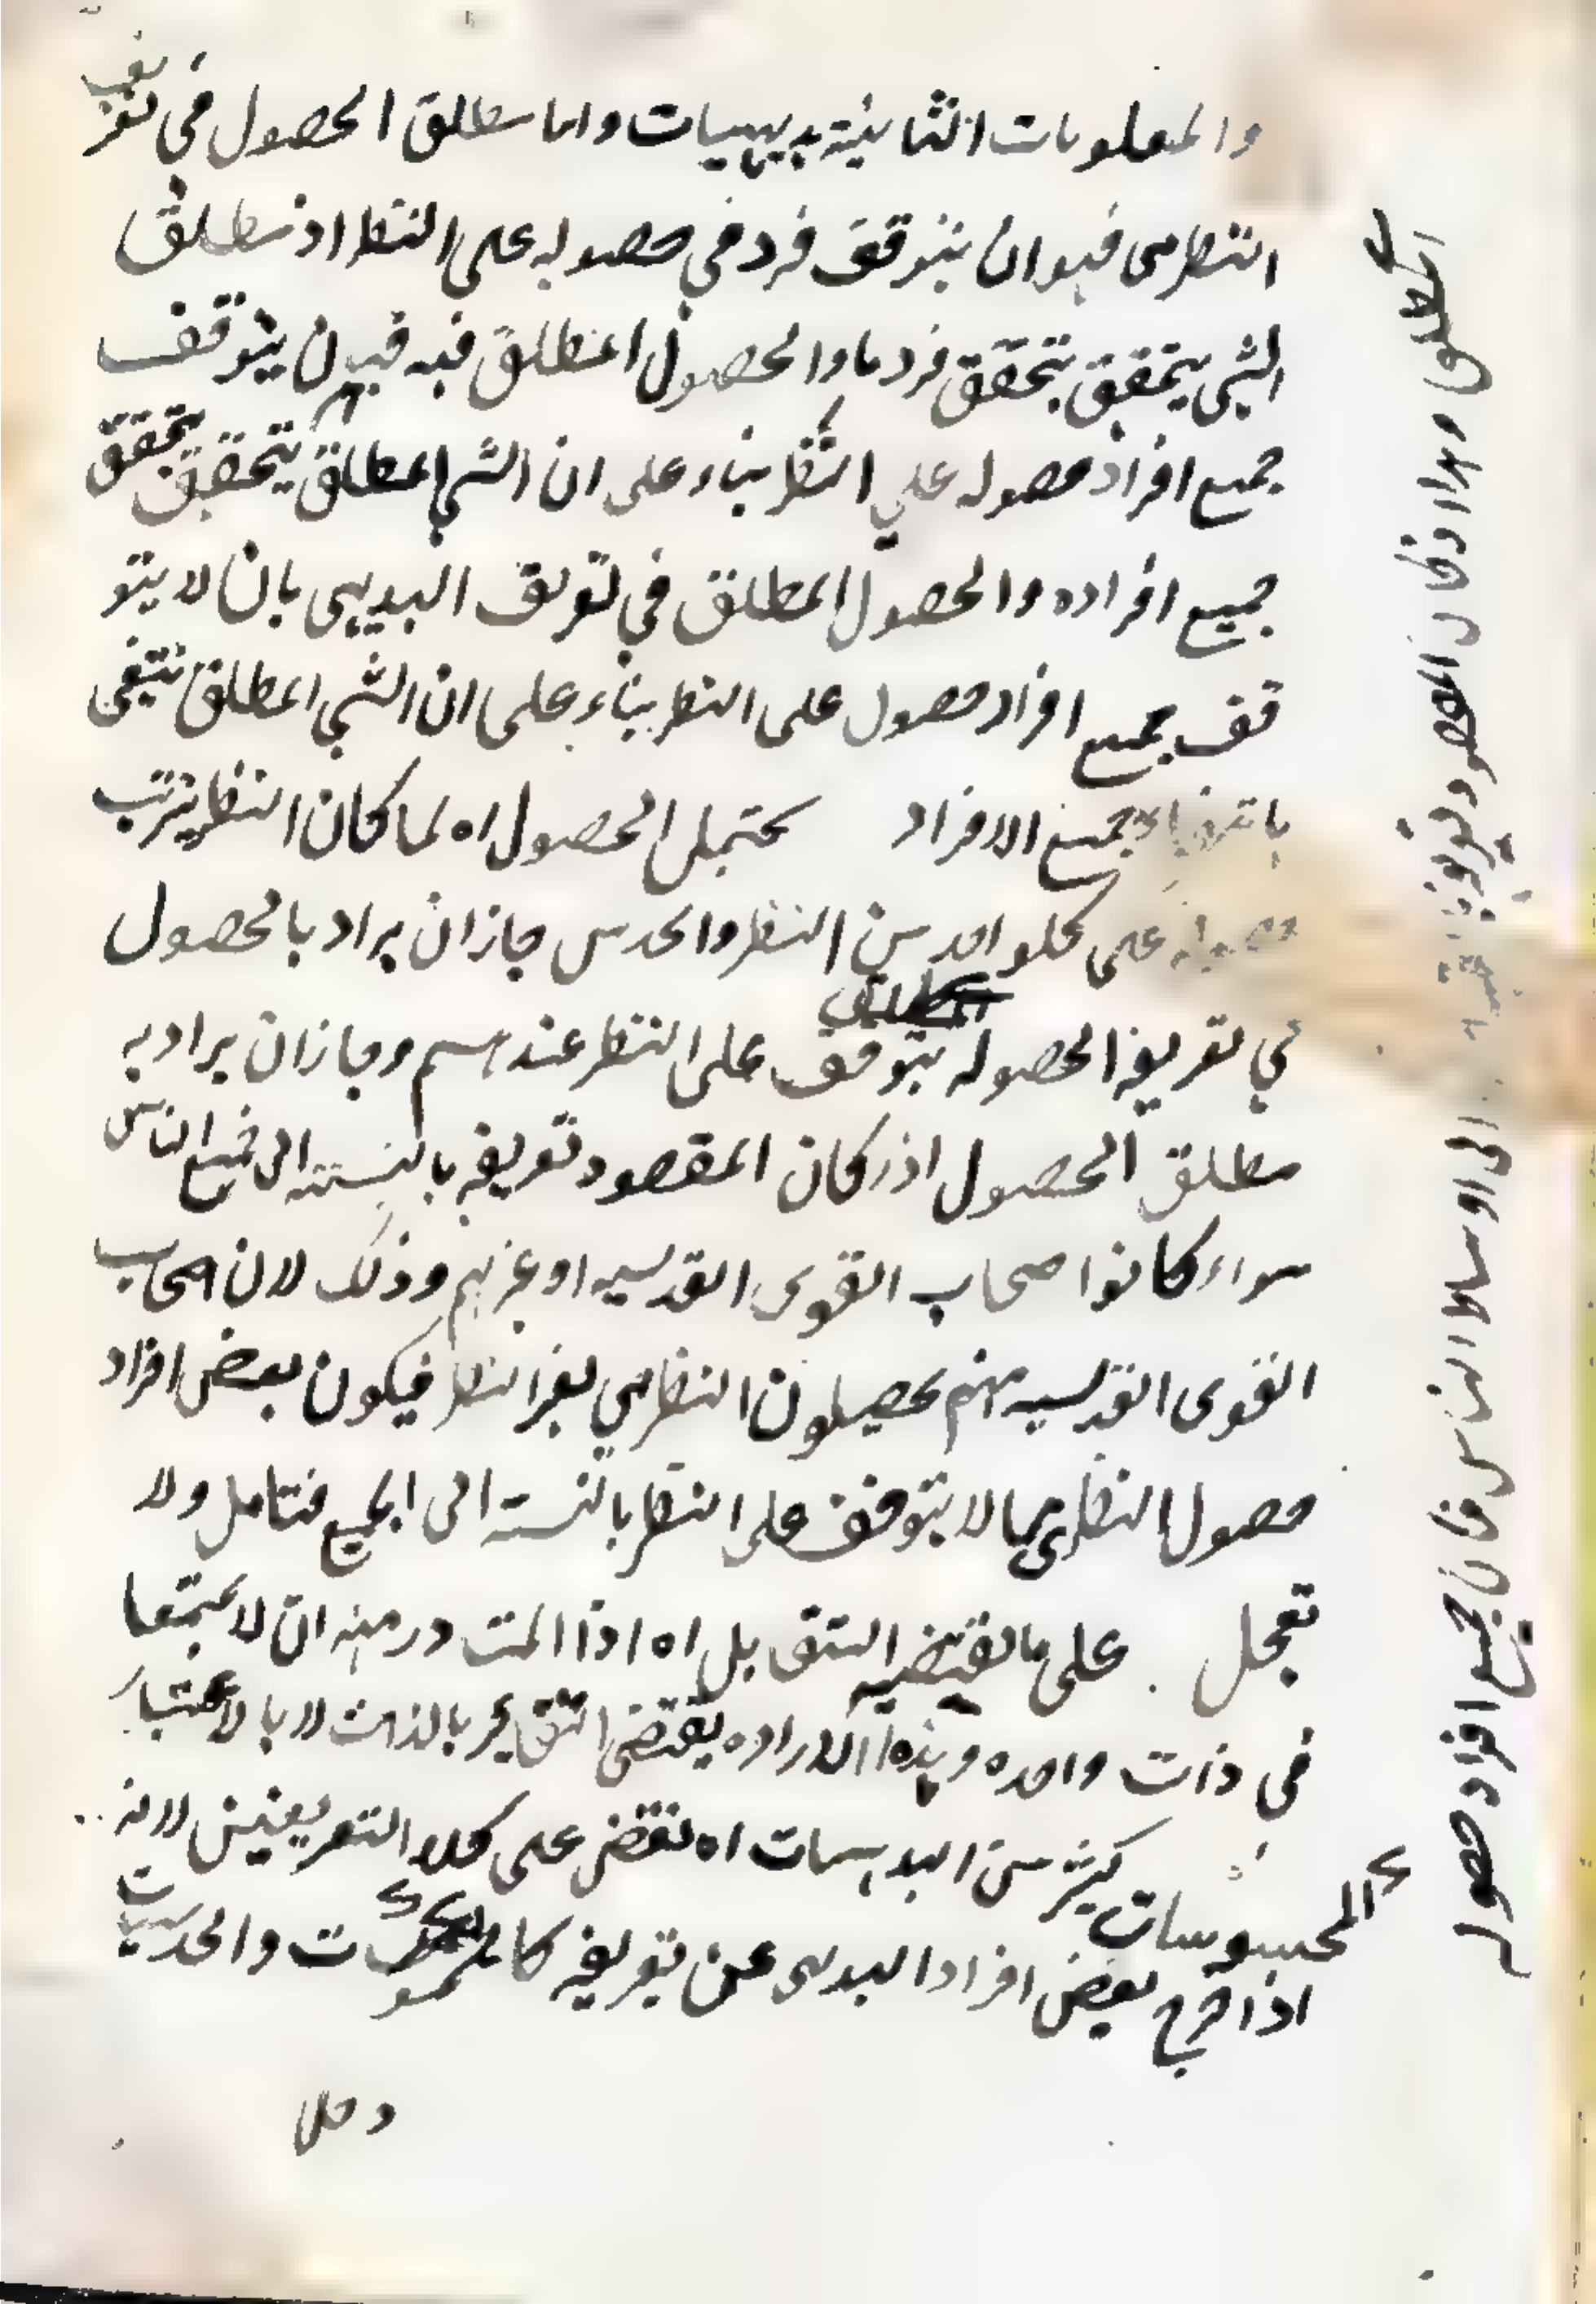 والمعلومات الثانية بديهيات واما مطلق الحصول في تعريف
النظرى فهو ان يتوقف فرد في حصوله على النظر اذ مطلق
الشي يتحقق بتحقق فرد ما والحصول المطلق فيه فهو ان يتوقف
جميع افراد حصوله على النظر بناء على ان الشي المطلق يتحقق بتحقق
جميع افراده والحصول المطلق في تعريف البديهى بان لا يتو
قف جميع افراد حصول على النظر بناء على ان الشي المطلق ينتفى
بانتفاء جميع الافراد يحتمل الحصول اه لما كان النظر يترتب
حصوله على كلواحد من النظر والحدس جاز ان يراد بالحصول
في تعريفه الحصوله يتوقف على النظر عندهم وجاز ان يراد به
مطلق الحصول اذ كان المقصود تعريفه بالنسبته الى جميع الناس
سواء كانوا صحاب القوى القدسيه او غيرهم وذلك لان اصحاب
القوى القدسيه منهم يحصلون النظرى بغير النظر فيكون بعض افراد
حصول النظرى مما لا يتوقف على النظر بالنسبته الى الجميع فتامل ولا
تعجل على ما يقتضيه التقابل اه اذ المتبادر منه ان لا يجتمعا
في ذات واحده وهذا الاراده يقتضى التقابل بالذات لا بالاعتبار
كالمحسوسات كثير من البديهيات اه نقض على كلا التعريفين لانه
اذا خرج بعض افراد البديهى عن تعريفه كالمحسوسات والحدسيات
دخلا
المطلق وهذا اذ كان المقصود تعريفه بالنسبة الى اوساط الناس فان جميع افراد حصوله